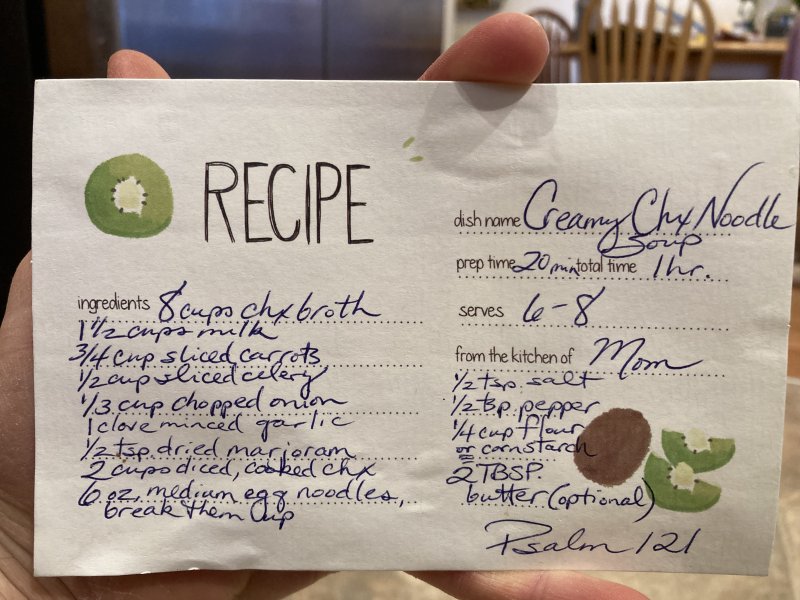 RECIPE
ingredients 8 cups chx broth
1 1/2 cups milk
3/4 cup sliced carrots
1/2 cup sliced celery
1/3 cup chopped onion
1 clove minced garlic
1/2 tsp. dried marjoram
2 cups diced, cooked chx
6 oz. medium egg noodles,
break them up
dish name Creamy Chx Noodle
Soup
prep time 20 min total time 1 hr.
serves 6-8
from the kitchen of Mom
1/2 tsp. salt
1/2 tsp pepper
1/4 cup flour
or cornstarch
2 TBSP.
butter (optional)
Psalm 121